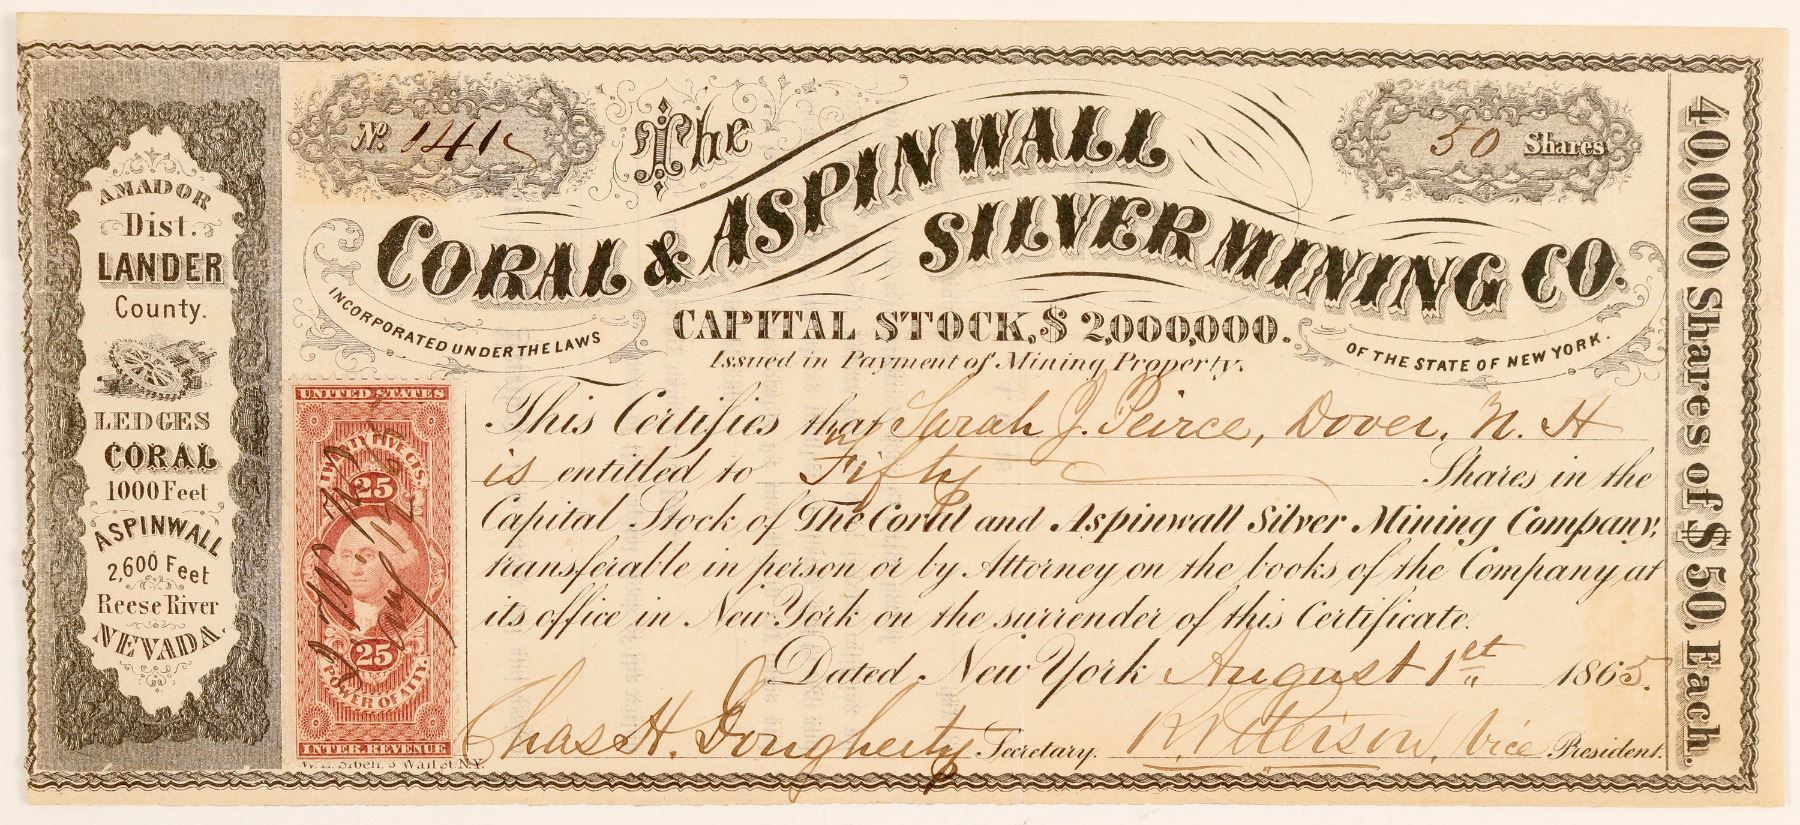 AMADOR
Dist.
LANDER
County.
LEDGES
CORAL
1000 Feet
ASPINWALL
2,600 Feet
Reese River
NEVADA.
No. 141
50 Shares
The
CORAL & ASPINWALL
SILVER MINING CO.
INCORPORATED UNDER THE LAWS
OF THE STATE OF NEW YORK.
CAPITAL STOCK, $ 2,000,000.
Issued in Payment of Mining Property.
This Certifies that Sarah J. Peirce, Dover, N. H
is entitled to Fifty Shares in the
Capital Stock of The Coral and Aspinwall Silver Mining Company,
transferable in person or by Attorney on the books of the Company at
its office in New York on the surrender of this Certificate.
Dated New York August 1st 1865.
Chas H. Dougherty Secretary. Vice President.
UNITED STATES
TWENTY FIVE CTS.
25
25
POWER OF ATT'Y.
INTER. REVENUE
Wall St. N.Y.
40,000 Shares of $50, Each.